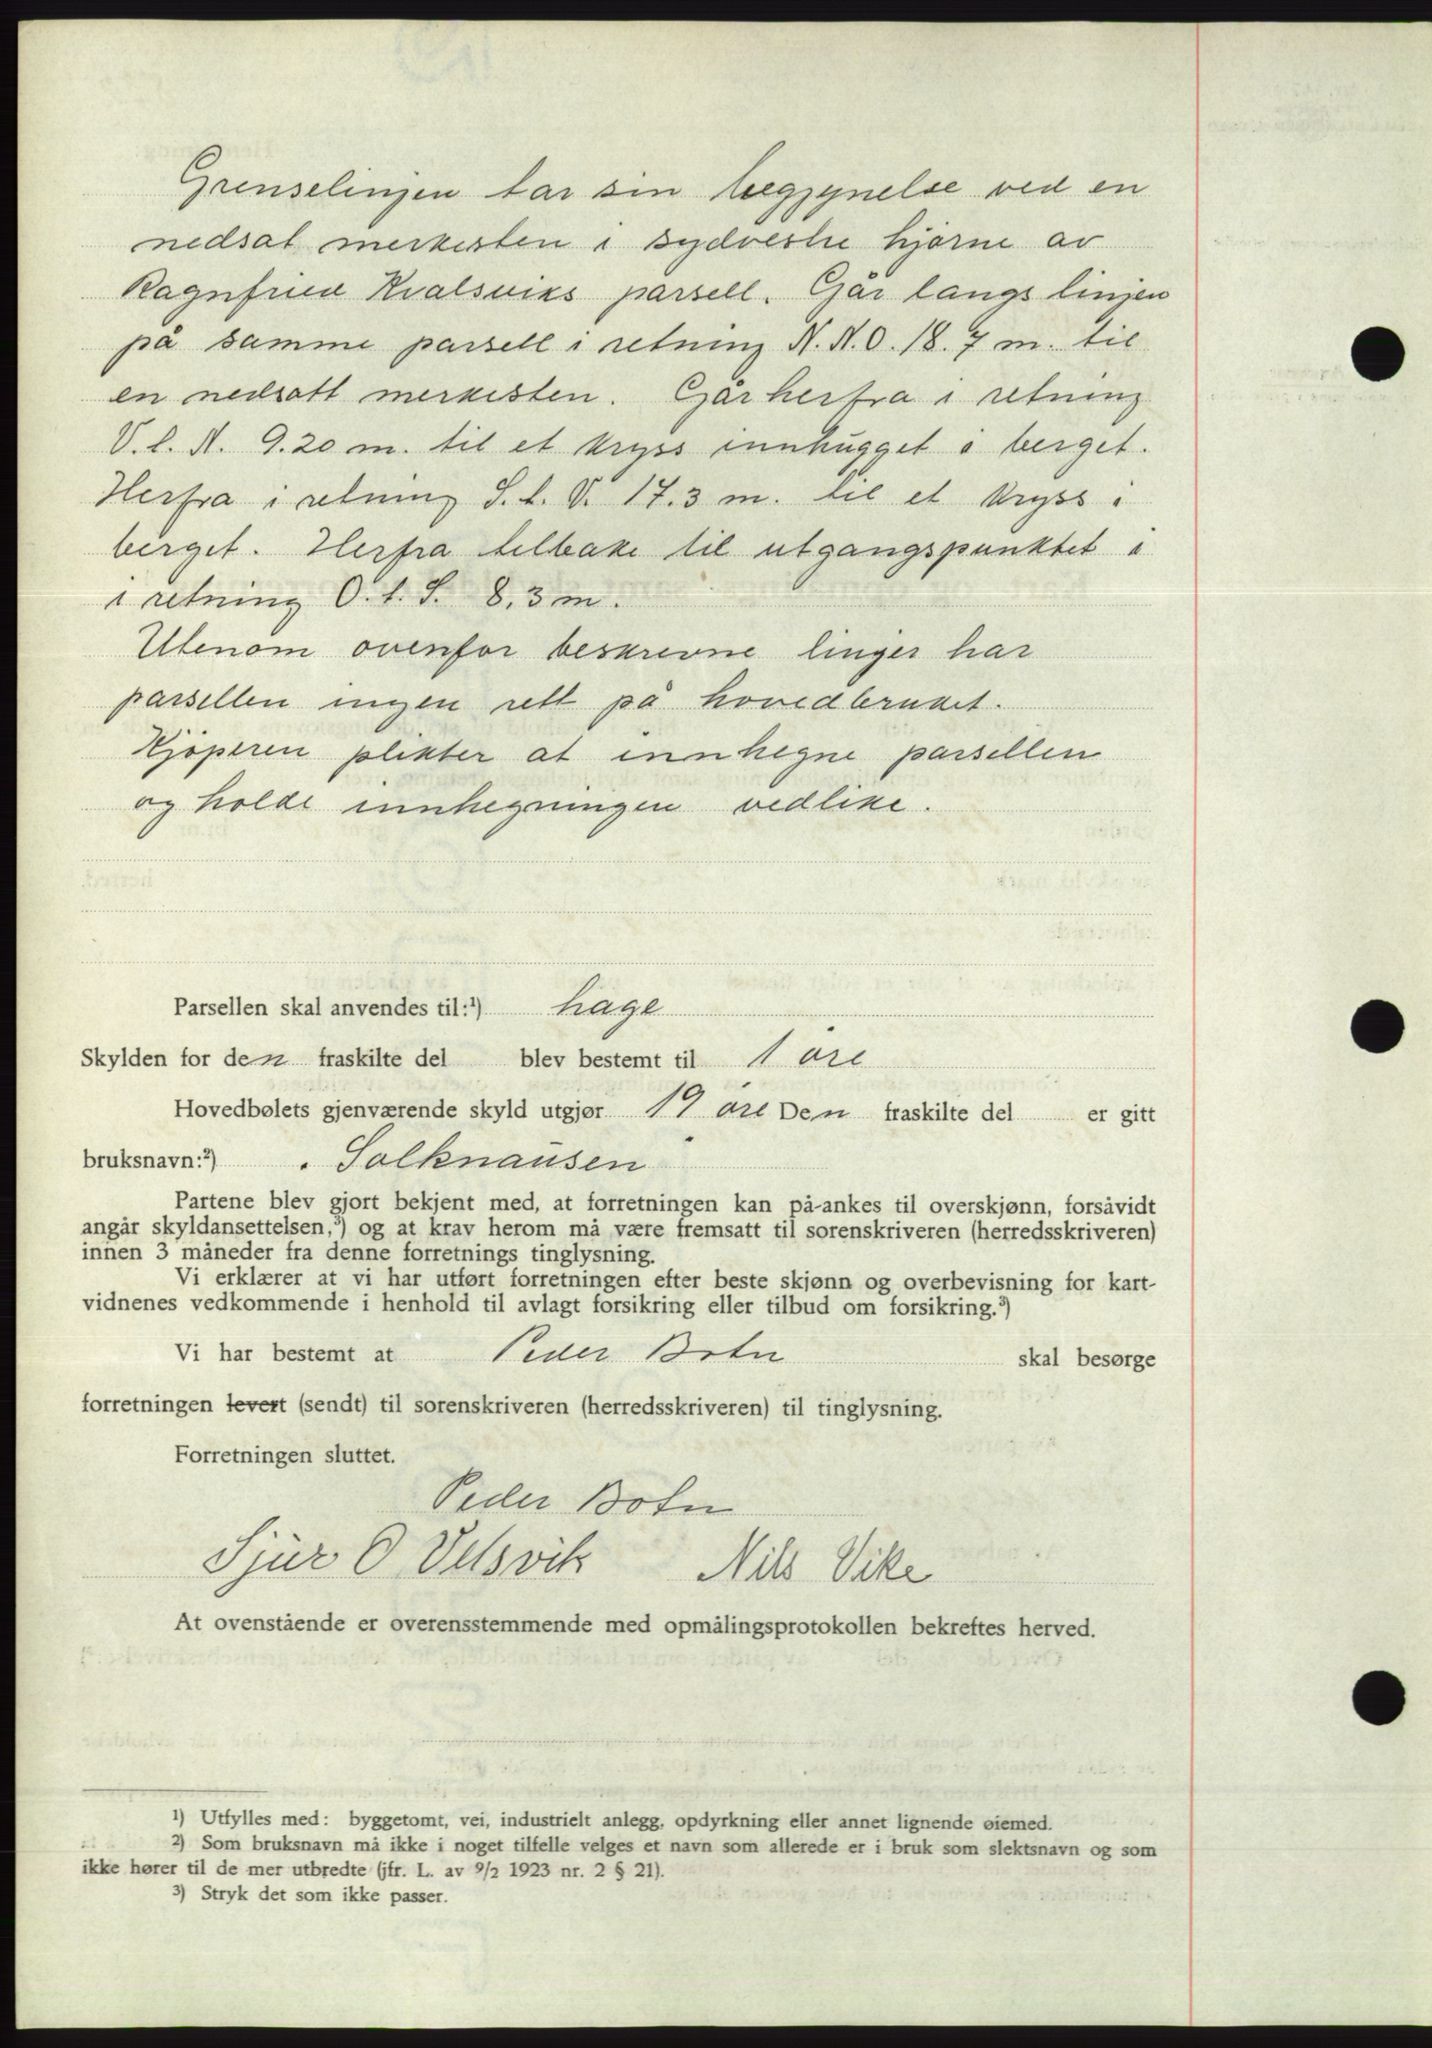 Grenselinjen tar sin begynelse ved en
nedsat merkesten i sydvestre hjørne av
Ragnfried Kvalsviks parsell. Går langs linjen
på samme parsell i retning N.N.O. 18.7 m. til
en nedsatt merkesten. Går herfra i retning
V.t.N. 9.20 m. til et kryss innhugget i berget.
Herfra i retning S.t.V. 17.3 m. til et kryss i
berget. Herfra tilbake til utgangspunktet i
i retning O.t.S. 8.3 m.
Utenom ovenfor beskrevne linjer har
parsellen ingen rett på hovedbruket.
Kjøperen plikter at innhegne parsellen
og holde innhegningen vedlike.
Parsellen skal anvendes til:¹) hage
Skylden for den fraskilte del blev bestemt til 1 øre
Hovedbølets gjenværende skyld utgjør 19 øre Den fraskilte del er gitt
bruksnavn:²) Solknausen
Partene blev gjort bekjent med, at forretningen kan på-ankes til overskjønn, forsåvidt
angår skyldansettelsen,³) og at krav herom må være fremsatt til sorenskriveren (herredsskriveren)
innen 3 måneder fra denne forretnings tinglysning.
Vi erklærer at vi har utført forretningen efter beste skjønn og overbevisning for kart-
vidnenes vedkommende i henhold til avlagt forsikring eller tilbud om forsikring.³)
Vi har bestemt at Peder Botn skal besørge
forretningen levert (sendt) til sorenskriveren (herredsskriveren) til tinglysning.
Forretningen sluttet.
Peder Botn
Sjur O Velsvik Nils Vike
At ovenstående er overensstemmende med opmålingsprotokollen bekreftes herved.
¹) Utfylles med: byggetomt, vei, industrielt anlegg, opdyrkning eller annet lignende øiemed.
²) Som bruksnavn må ikke i noget tilfelle velges et navn som allerede er i bruk som slektsnavn og som
ikke hører til de mer utbredte (jfr. L. av 9/2 1923 nr. 2 § 21).
³) Stryk det som ikke passer.